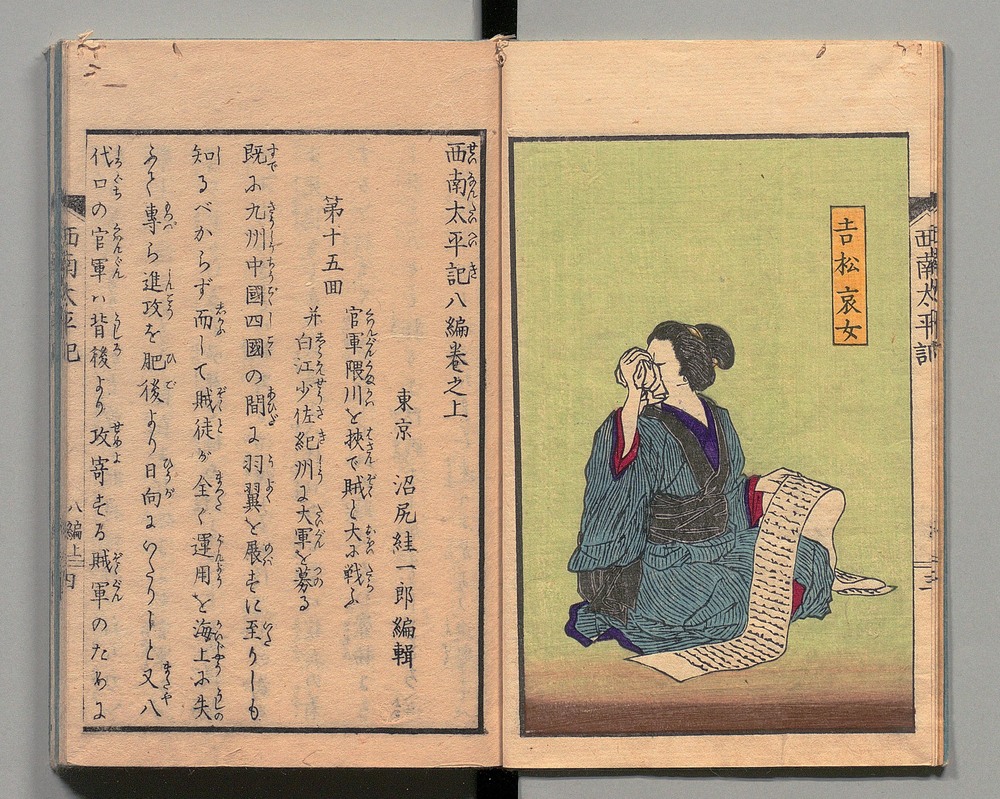 西南太平記
吉松哀女
西南太平記八編巻之上
東京 沼尻絓一郎編輯
第十五回
官軍隈川を挟で賊と大に戦ふ
并白江少佐紀州に大軍を募る
既に九州中國四國の間に羽翼を展るに至りしも
知るべからず而して賊徒が全く運用を海上に失
ふて專ら進攻を肥後より日向に
と又八
代口の官軍ハ背後より攻寄する賊軍のために
西南太平記
八編上
四